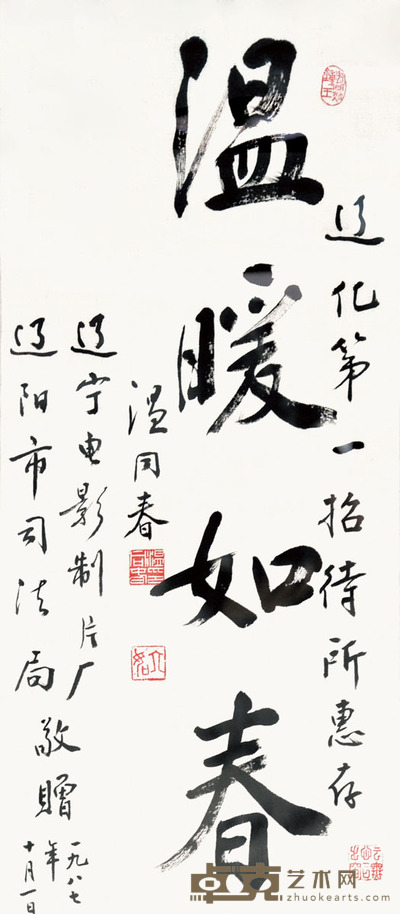 辽化第一招待所惠存
温暖如春
温同春
辽宁电影制片厂
辽阳市司法局敬赠
一九八七
年
十月一日
卓克艺术网
zhuokearts.com